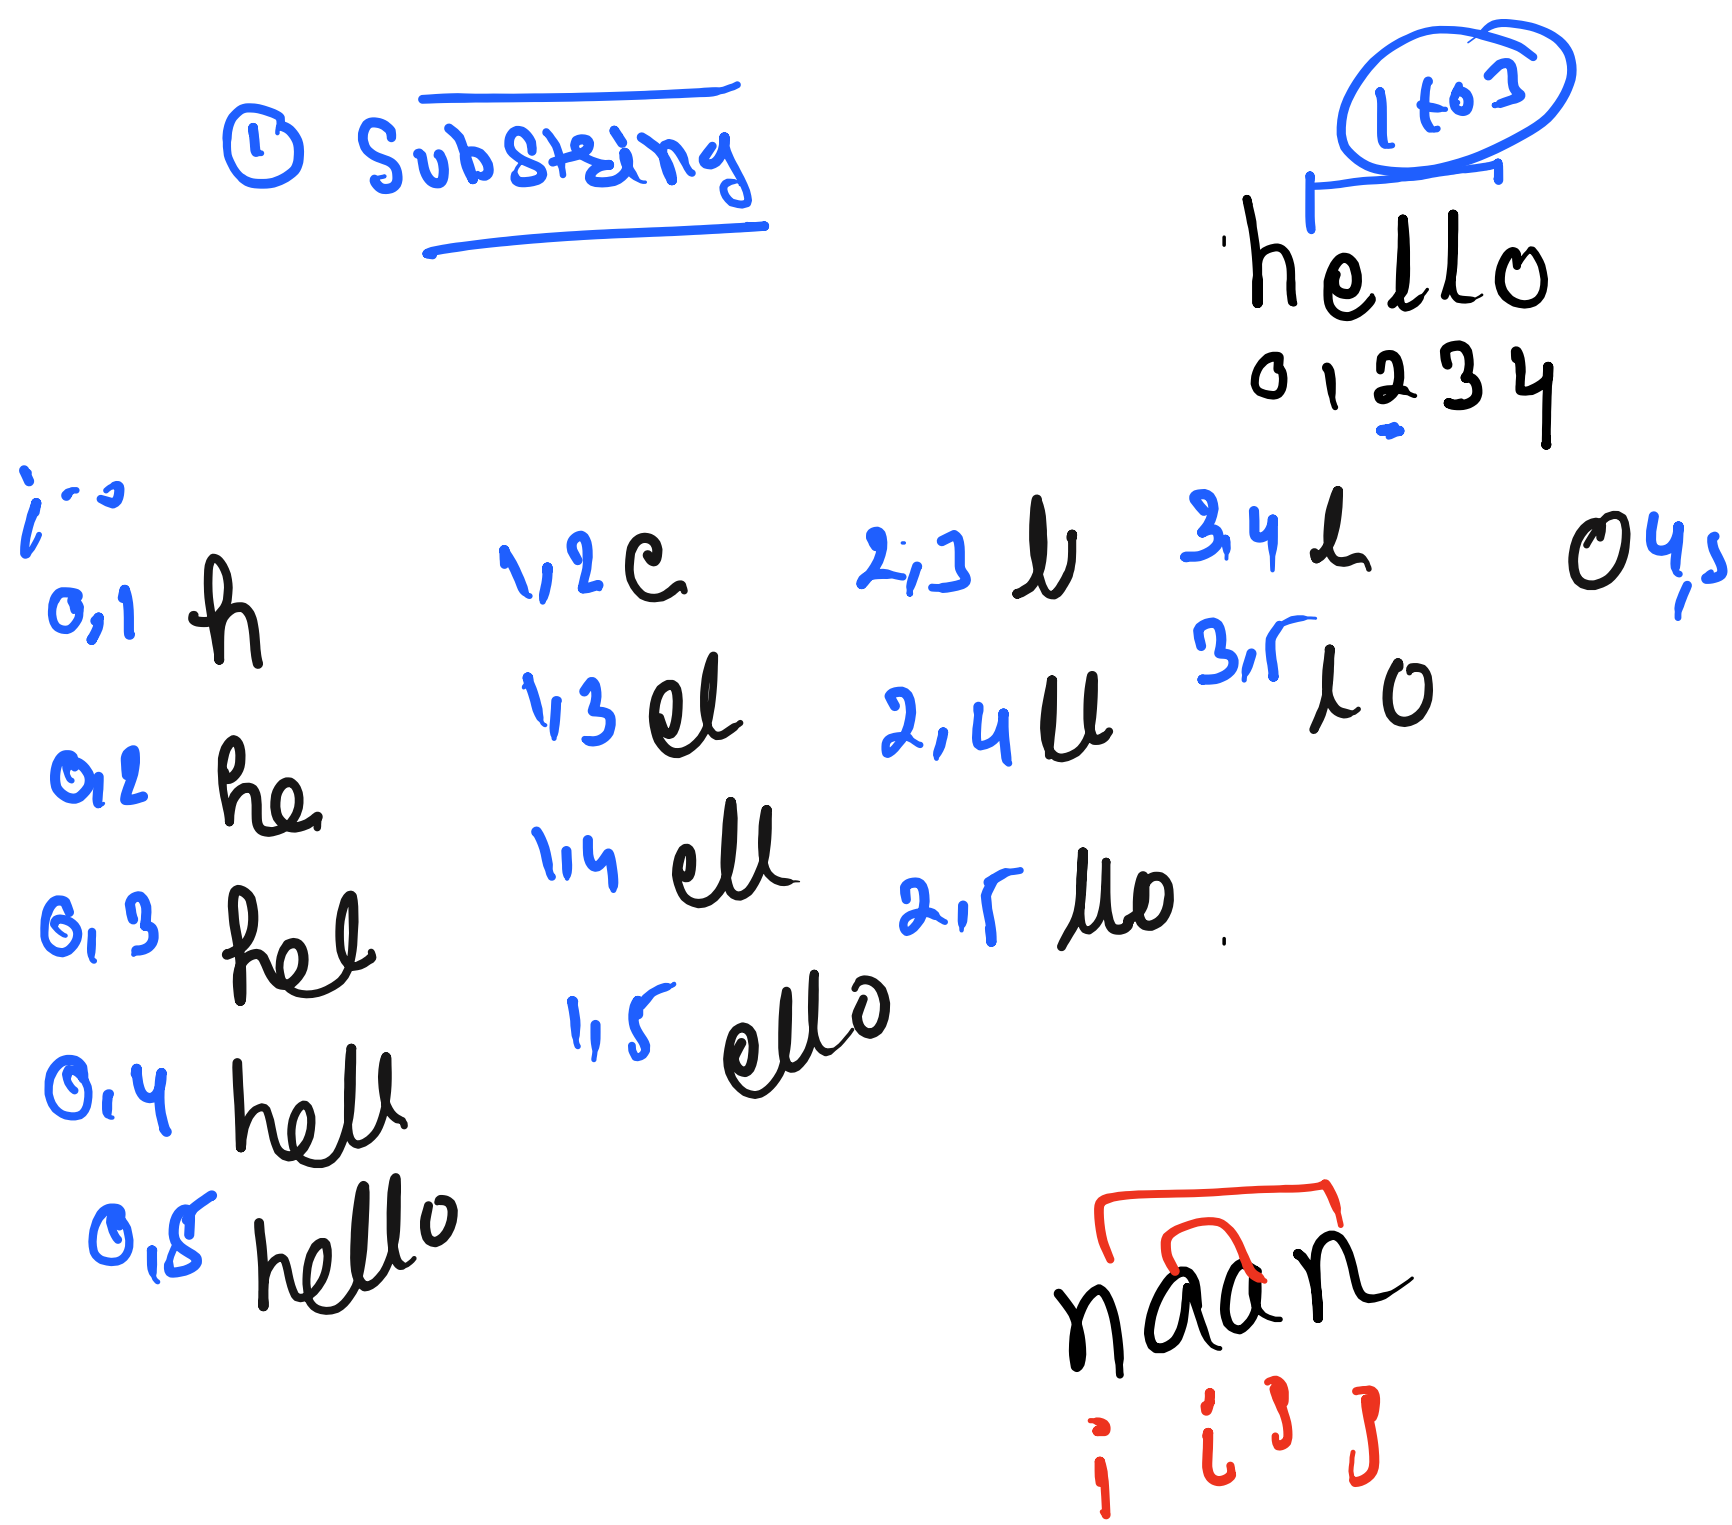 ① Substring
1 to 3
hello
0 1 2 3 4
0,1 h
0,2 he
0,3 hel
0,4 hell
0,5 hello
1,2 e
1,3 el
1,4 ell
1,5 ello
2,3 l
2,4 ll
2,5 llo
3,4 l
3,5 lo
o 4,5
naan
i i j j